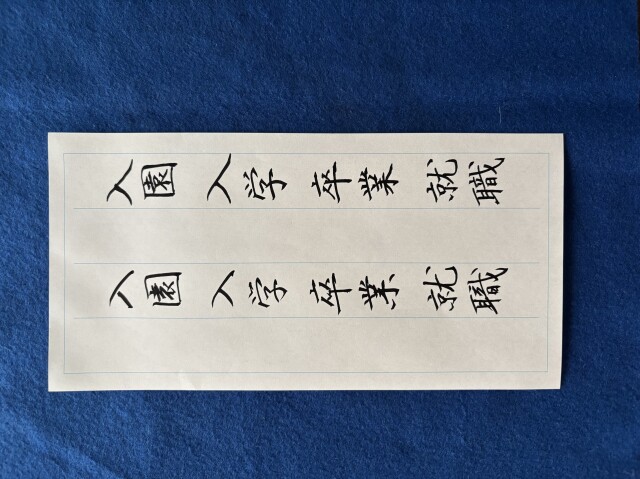 入園 入学 卒業 就職
入園 入学 卒業 就職